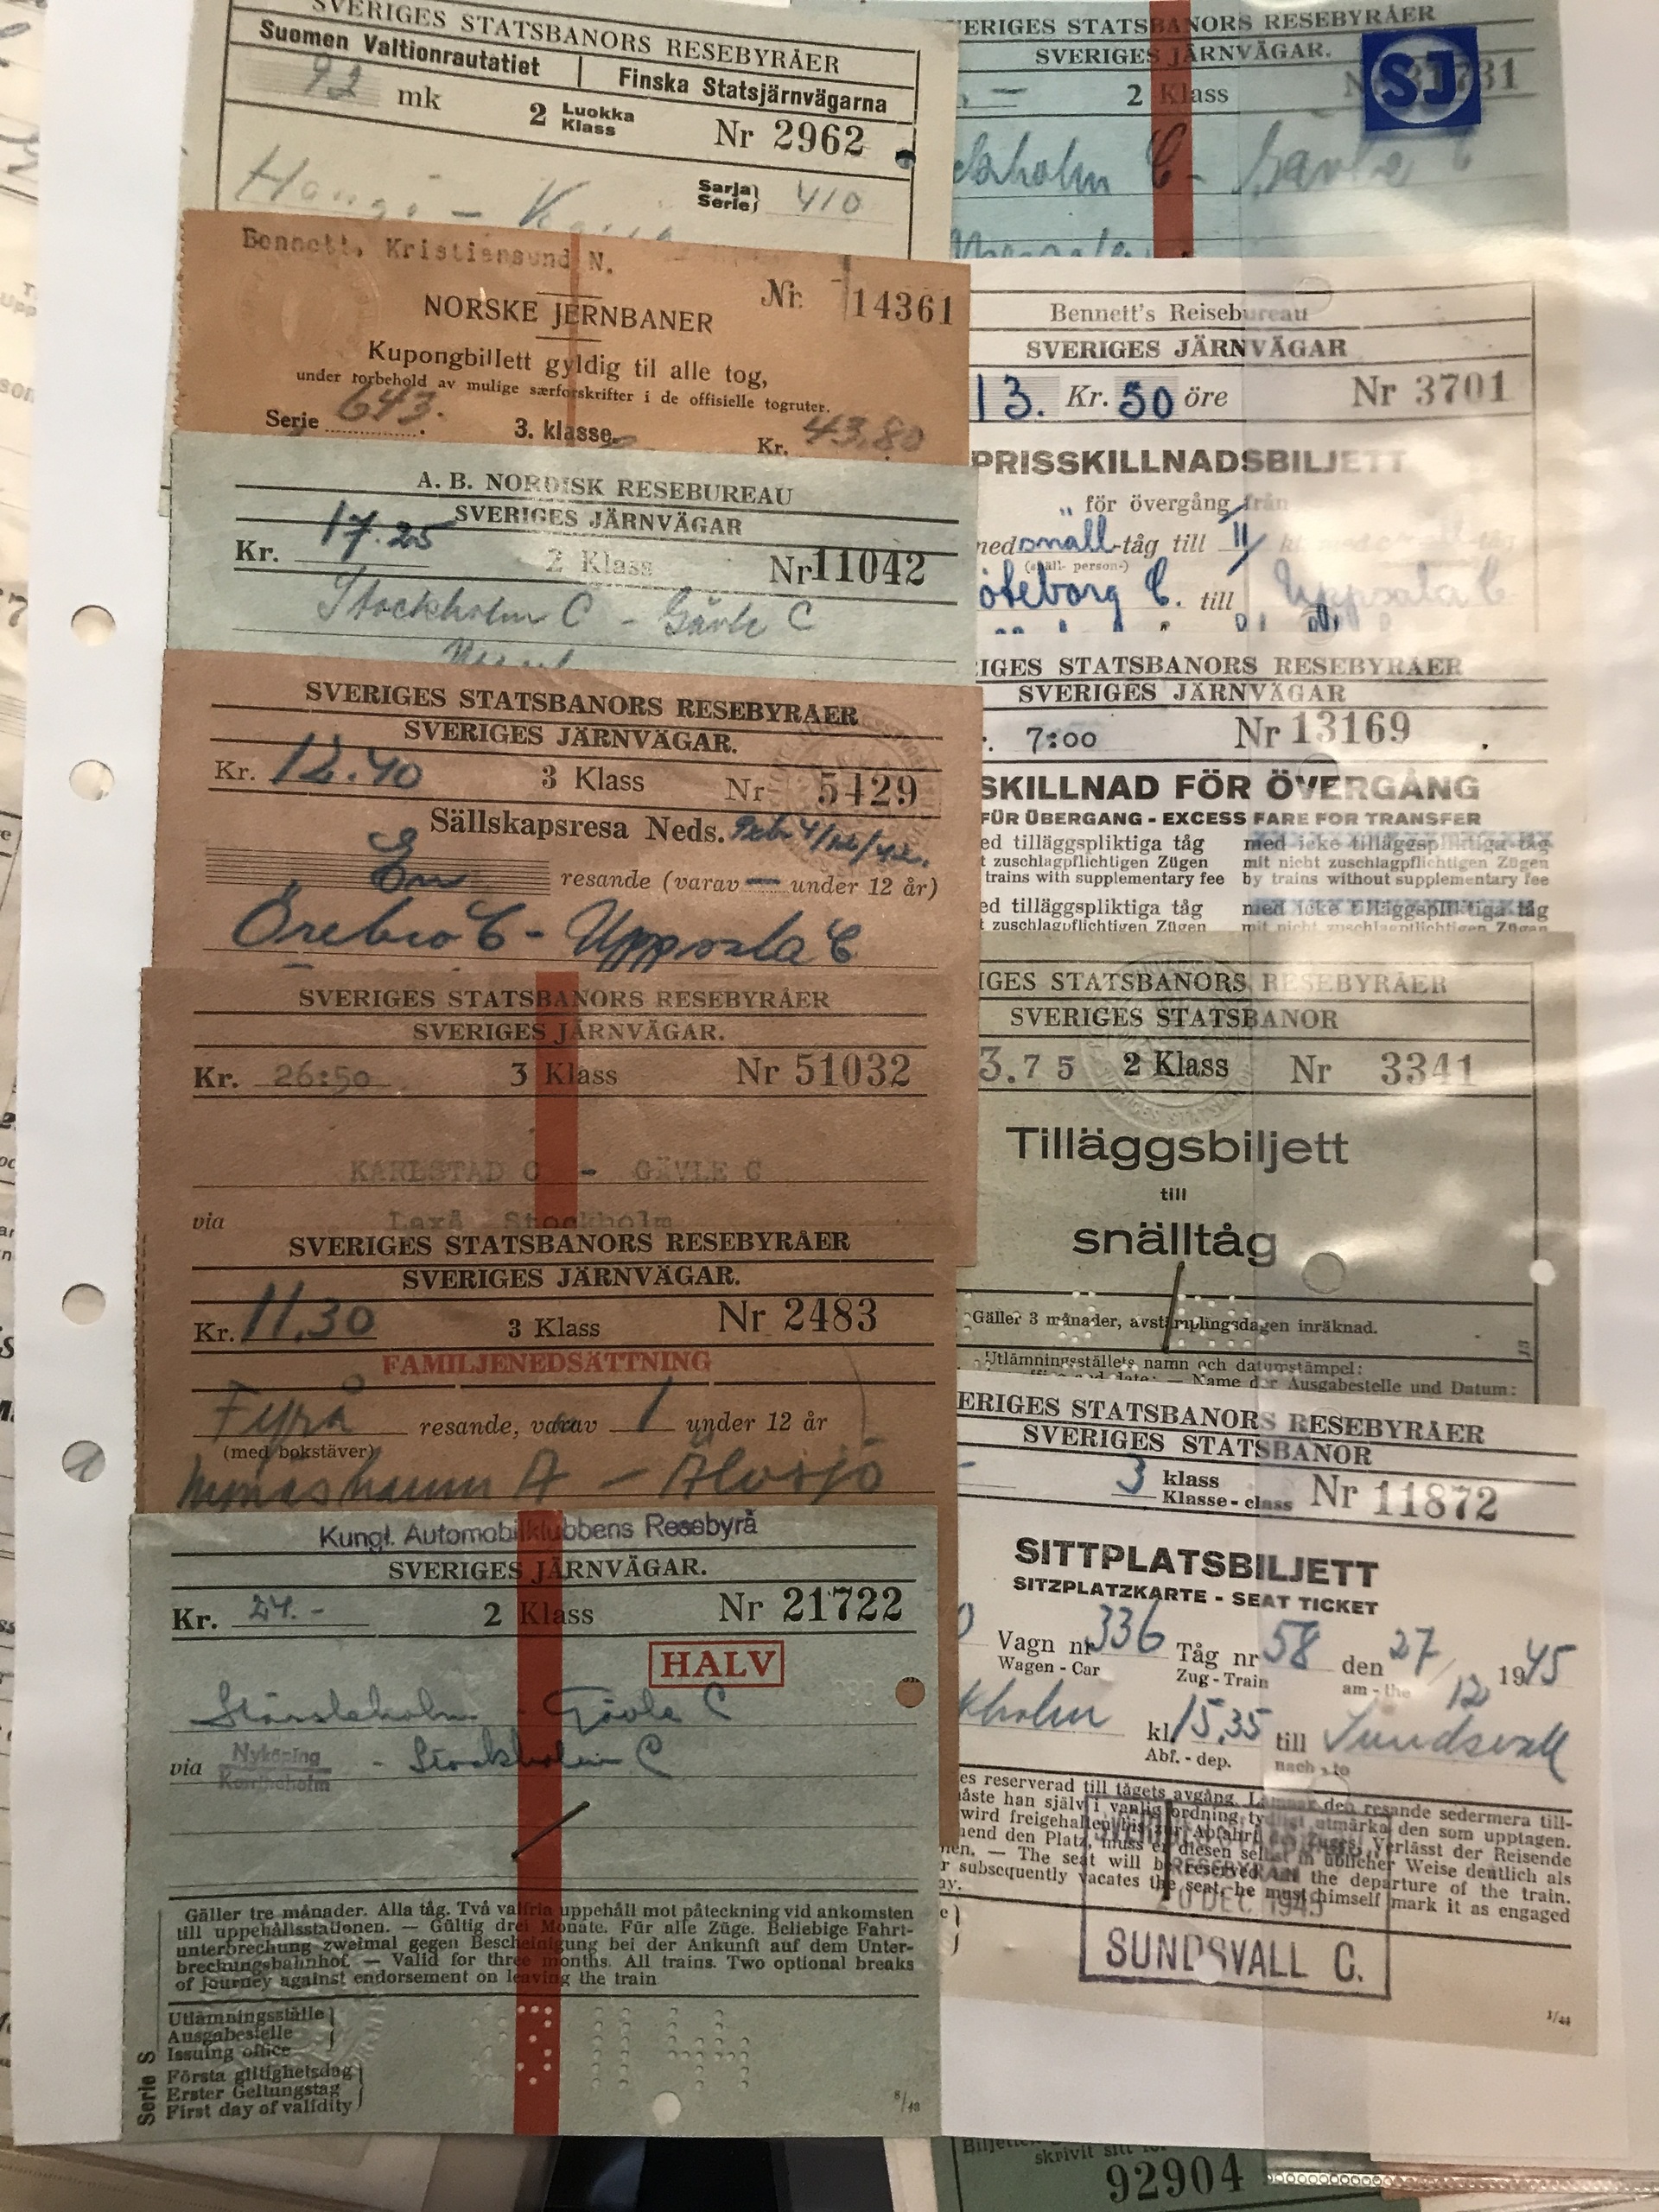 SVERIGES STATSBANORS RESEBYRÅER
Suomen Valtionrautatiet | Finska Statsjärnvägarna
92 mk 2 Luokka Klass Nr 2962
Sarja Serie 410
Bennett, Kristiansund N.
NORSKE JERNBANER Nr. 14361
Kupongbillett gyldig til alle tog,
under forbehold av mulige særforskrifter i de offisielle togruter.
Serie 643. 3. klasse Kr. 43,80
A. B. NORDISK RESEBUREAU
SVERIGES JÄRNVÄGAR
Kr. 17.25 2 Klass Nr 11042
Stockholm C - Gävle C
SVERIGES STATSBANORS RESEBYRÅER
SVERIGES JÄRNVÄGAR.
Kr. 12.40 3 Klass Nr 5429
Sällskapsresa Neds.
En resande (varav — under 12 år)
Örebro C - Uppsala C
SVERIGES STATSBANORS RESEBYRÅER
SVERIGES JÄRNVÄGAR.
Kr. 26:50 3 Klass Nr 51032
KARLSTAD C - GÄVLE C
via Laxå Stockholm
SVERIGES STATSBANORS RESEBYRÅER
SVERIGES JÄRNVÄGAR.
Kr. 11,30 3 Klass Nr 2483
FAMILJENEDSÄTTNING
Fyra resande, varav 1 under 12 år
(med bokstäver)
Älvsjö
Kungl. Automobilklubbens Resebyrå
SVERIGES JÄRNVÄGAR.
Kr. 24.- 2 Klass Nr 21722
HALV
Gävle C
via Nyköping - Stockholm C
Gäller tre månader. Alla tåg. Två valfria uppehåll mot påteckning vid ankomsten
till uppehållsstationen. — Gültig drei Monate. Für alle Züge. Beliebige Fahrt-
unterbrechung zweimal gegen Bescheinigung bei der Ankunft auf dem Unter-
brechungsbahnhof. — Valid for three months. All trains. Two optional breaks
of journey against endorsement on leaving the train
Utlämningsställe
Ausgabestelle
Issuing office
Första giltighetsdag
Erster Geltungstag
First day of validity
Serie S
8/48
ERIGES STATSBANORS RESEBYRÅER
SVERIGES JÄRNVÄGAR.
SJ
2 Klass
ckholm C - Gävle C
Bennett's Reisebureau
SVERIGES JÄRNVÄGAR
13. Kr. 50 öre Nr 3701
PRISSKILLNADSBILJETT
för övergång från
med snäll-tåg till II
(snäll- person-)
öteborg C. till Uppsala C
IGES STATSBANORS RESEBYRÅER
SVERIGES JÄRNVÄGAR
7:00 Nr 13169
SKILLNAD FÖR ÖVERGÅNG
FÜR ÜBERGANG - EXCESS FARE FOR TRANSFER
ed tilläggspliktiga tåg med icke tilläggspliktiga tåg
t zuschlagpflichtigen Zügen mit nicht zuschlagpflichtigen Zügen
trains with supplementary fee by trains without supplementary fee
ed tilläggspliktiga tåg med icke tilläggspliktiga tåg
t zuschlagpflichtigen Zügen mit nicht zuschlagpflichtigen Zügen
IGES STATSBANORS RESEBYRÅER
SVERIGES STATSBANOR
3.75 2 Klass Nr 3341
Tilläggsbiljett
till
snälltåg
Gäller 3 månader, avstämplingsdagen inräknad.
Utlämningsställets namn och datumstämpel:
Name der Ausgabestelle und Datum:
ERIGES STATSBANORS RESEBYRÅER
SVERIGES STATSBANOR
3 klass Klasse-class Nr 11872
SITTPLATSBILJETT
SITZPLATZKARTE - SEAT TICKET
Vagn nr 336 Tåg nr 58 den 27/12 1945
Wagen - Car Zug - Train am - the
kholm kl. 15,35 till Sundsvall
Abf. - dep. nach - to
es reserverad till tågets avgång. Lämnar den resande sedermera till-
åste han själv i vanlig ordning tydligt utmärka den som upptagen.
wird freigehalten bis zur Abfahrt des Zuges. Verlässt der Reisende
hend den Platz, muss er diesen selbst in üblicher Weise deutlich als
nen. — The seat will be reserved till the departure of the train.
r subsequently vacates the seat, he must himself mark it as engaged
ay.
RESEBYRÅN
20 DEC 1945
SUNDSVALL C.
1/44
skrivit sitt
92904